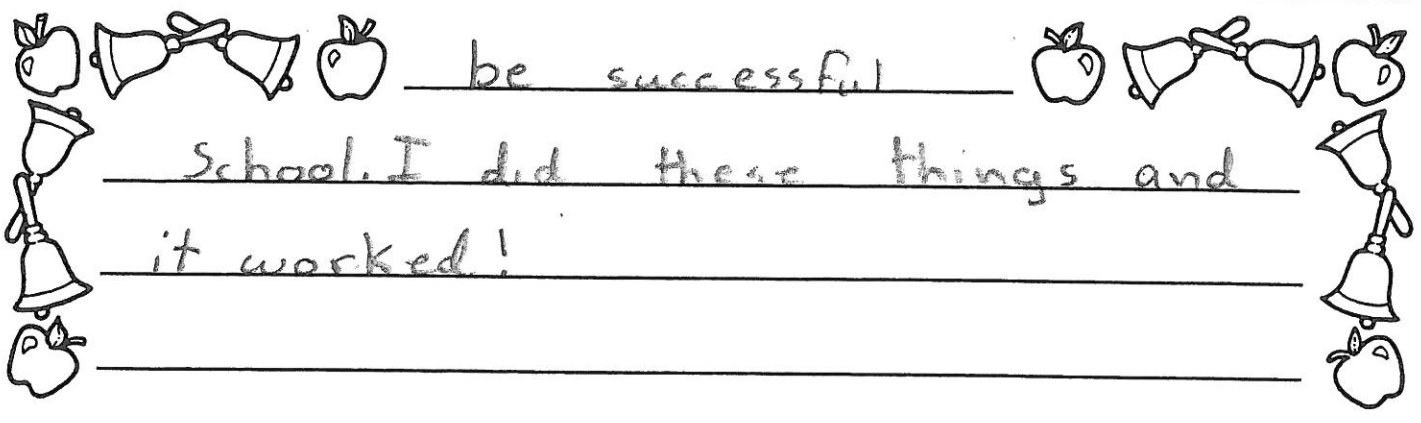 be successful
School. I did these things and
it worked!